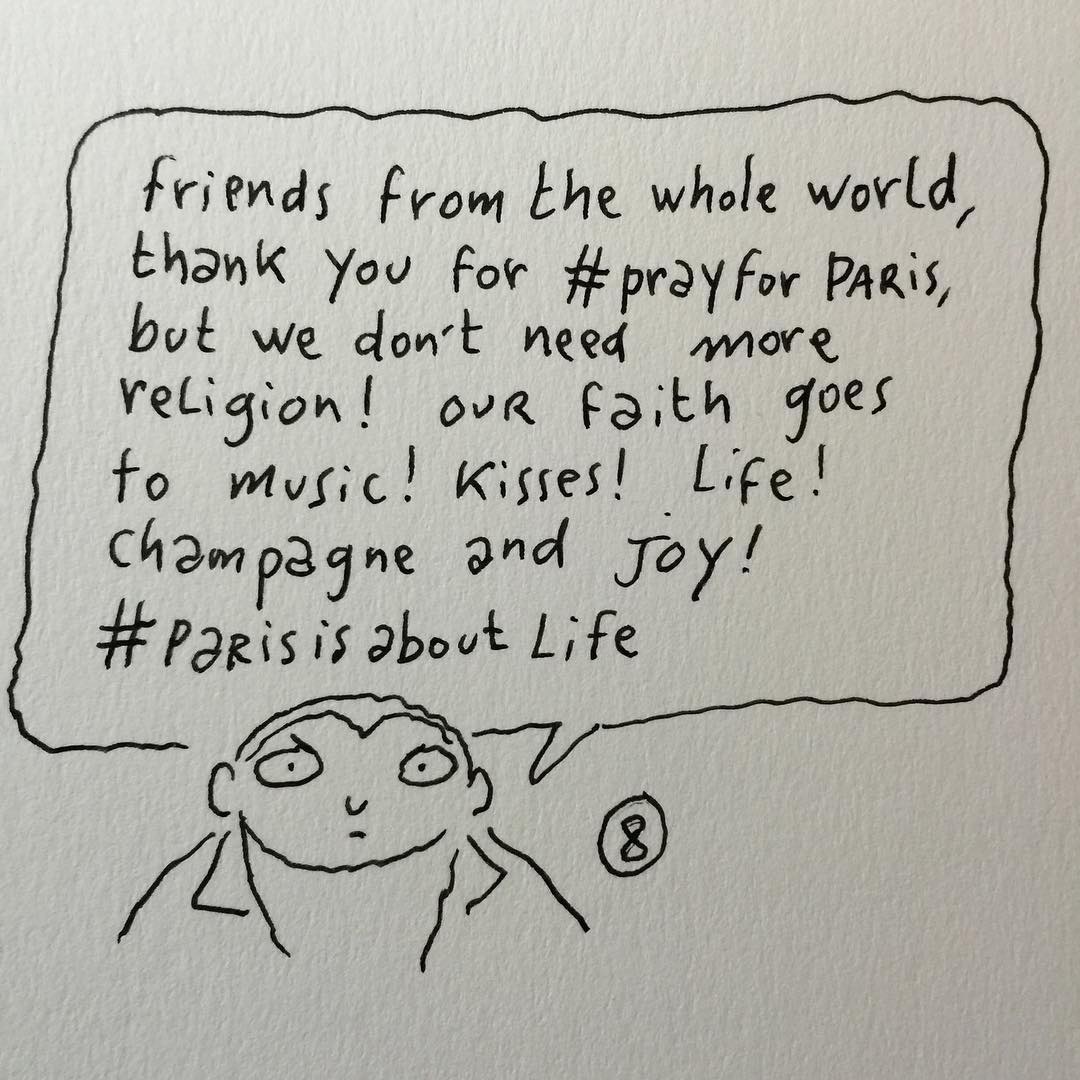 friends from the whole world,
thank you for #prayfor PARis,
but we don't need more
religion! our faith goes
to music! Kisses! Life!
champagne and Joy!
#Parisisabout Life
8